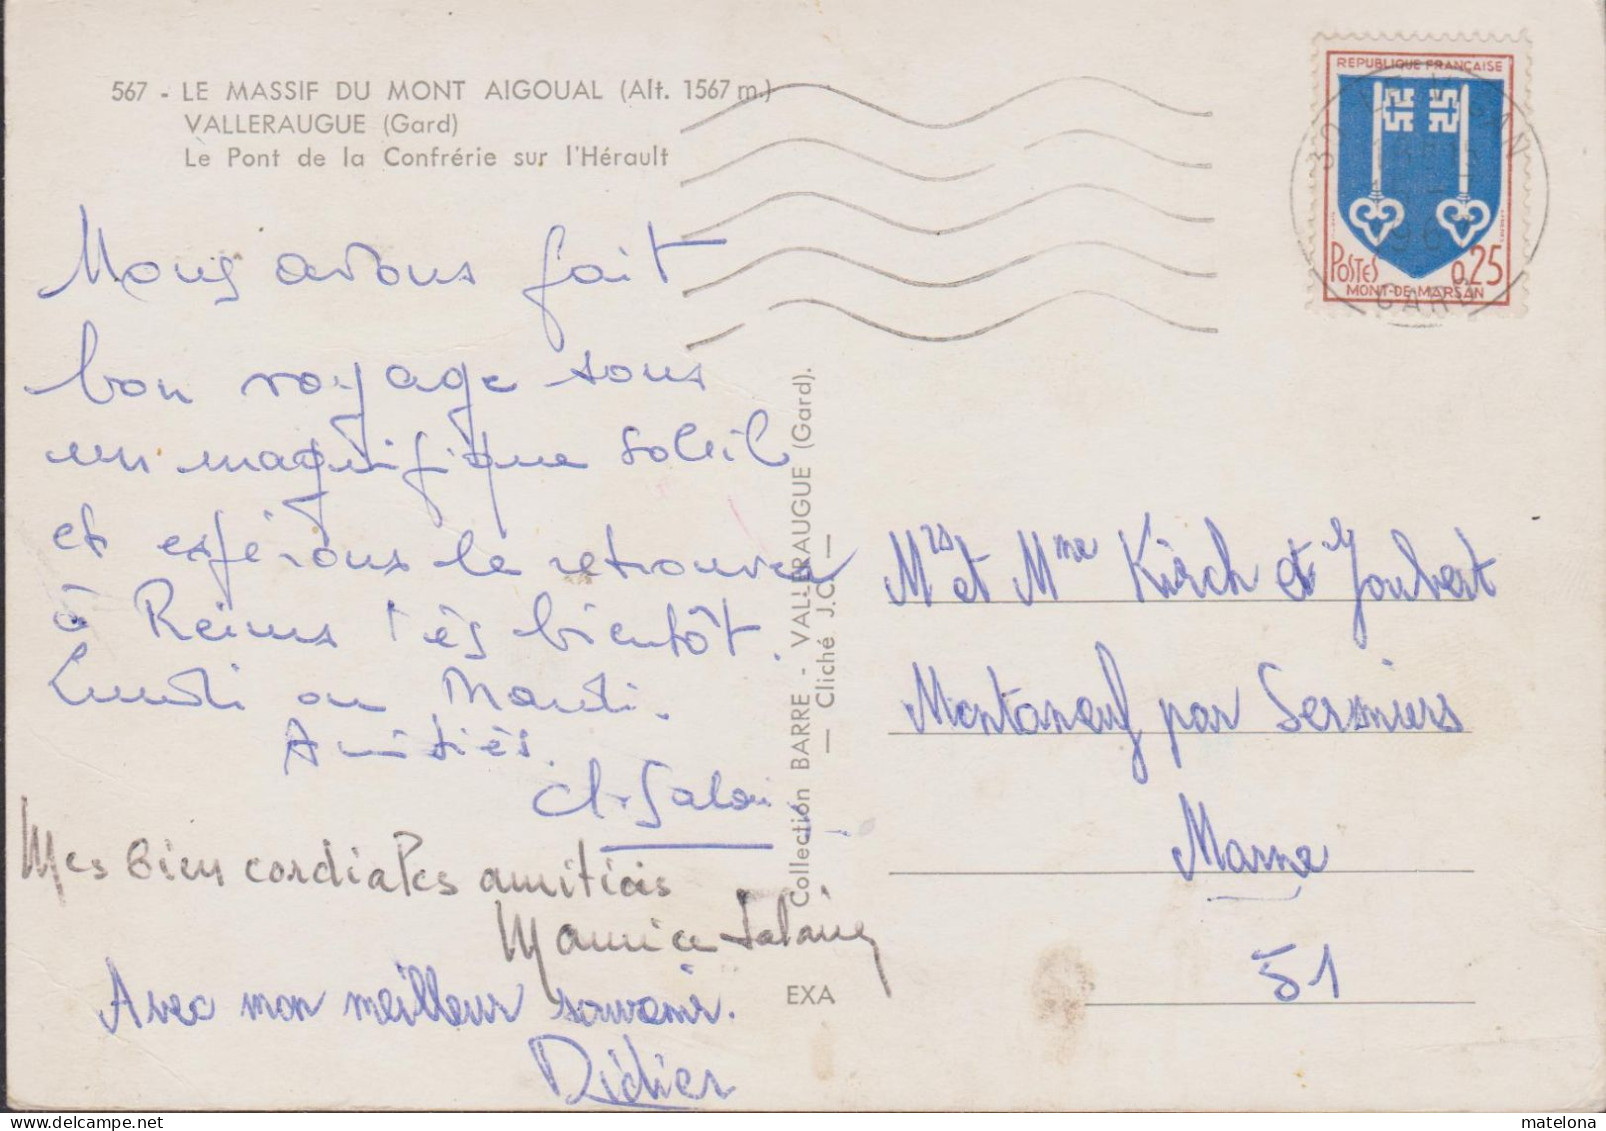 567 - LE MASSIF DU MONT AIGOUAL (Alt. 1567 m.)
VALLERAUGUE (Gard)
Le Pont de la Confrérie sur l'Hérault
Nous avons fait
bon voyage sous
un magnifique soleil
et espérons le retrouver
à Reims très bientôt.
Lundi ou Mardi.
Amitiés.
Mes bien cordiales amitiés
Maurice
Avec mon meilleur souvenir.
Didier
Collection BARRE - VALLERAUGUE (Gard).
— Cliché J.C. —
EXA
REPUBLIQUE FRANÇAISE
POSTES 0,25
MONT-DE-MARSAN
30 LE VIGAN
GARD
Mrs et Mme Kirch et Joubert
Montaneuf par Sermiers
Marne
51
matelona